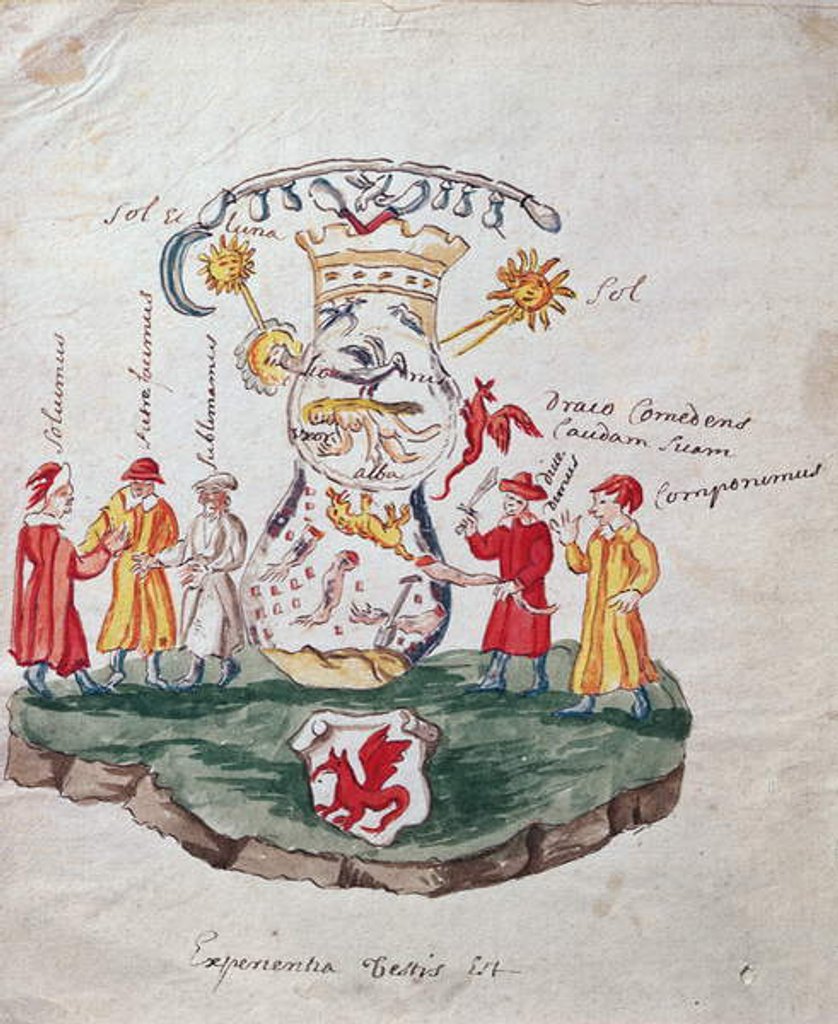 Sol Et
luna
Sol
Solumus
Putrefacimus
Sublimamus
uxor
alba
Draco Comedens
Caudam Suam
Dividimus
Componimus
Experientia testis Est